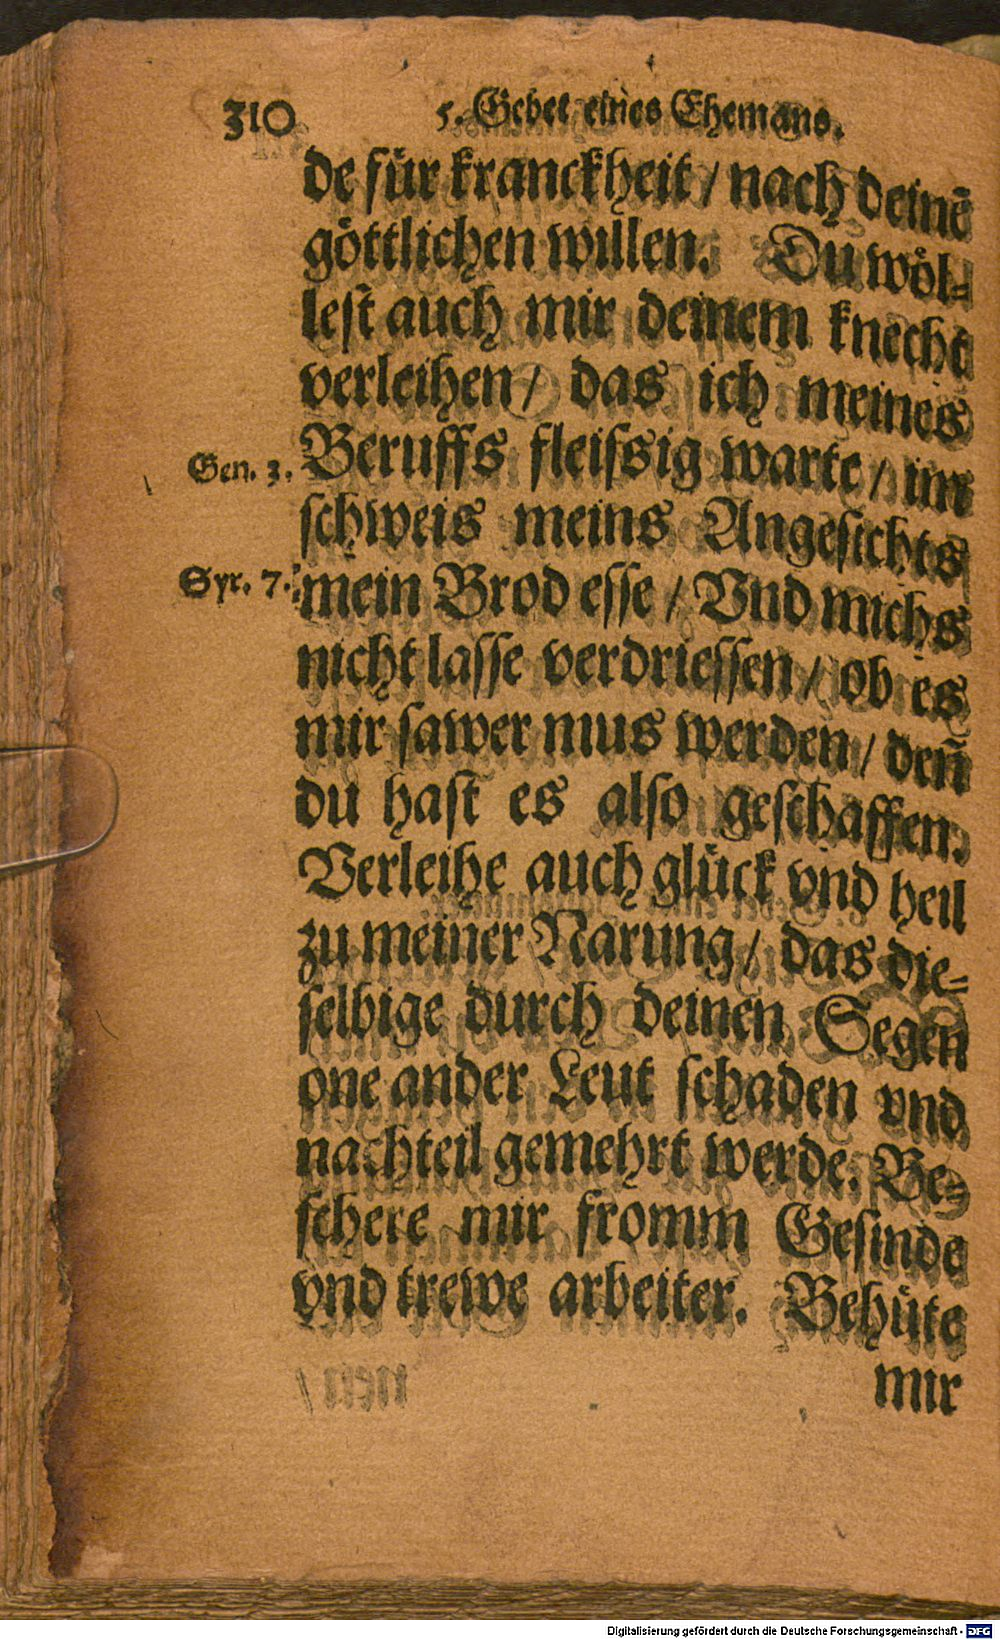 310 5. Gebet eines Ehemans.
de für kranckheit / nach deinē
göttlichen willen. Du wöl-
lest auch mir deinem knecht
verleihen / das ich meines
Gen. 3. Beruffs fleissig warte / im
schweis meins Angesichts
Syr. 7. mein Brod esse / Vnd michs
nicht lasse verdriessen / ob es
mir sawer mus werden / deñ
du hast es also geschaffen.
Verleihe auch glück vnd heil
zu meiner Narung / das die-
selbige durch deinen Segen
one ander Leut schaden vnd
nachteil gemehrt werde. Be-
schere mir fromm Gesinde
vnd trewe arbeiter. Behüte
mir
Digitalisierung gefördert durch die Deutsche Forschungsgemeinschaft - DFG